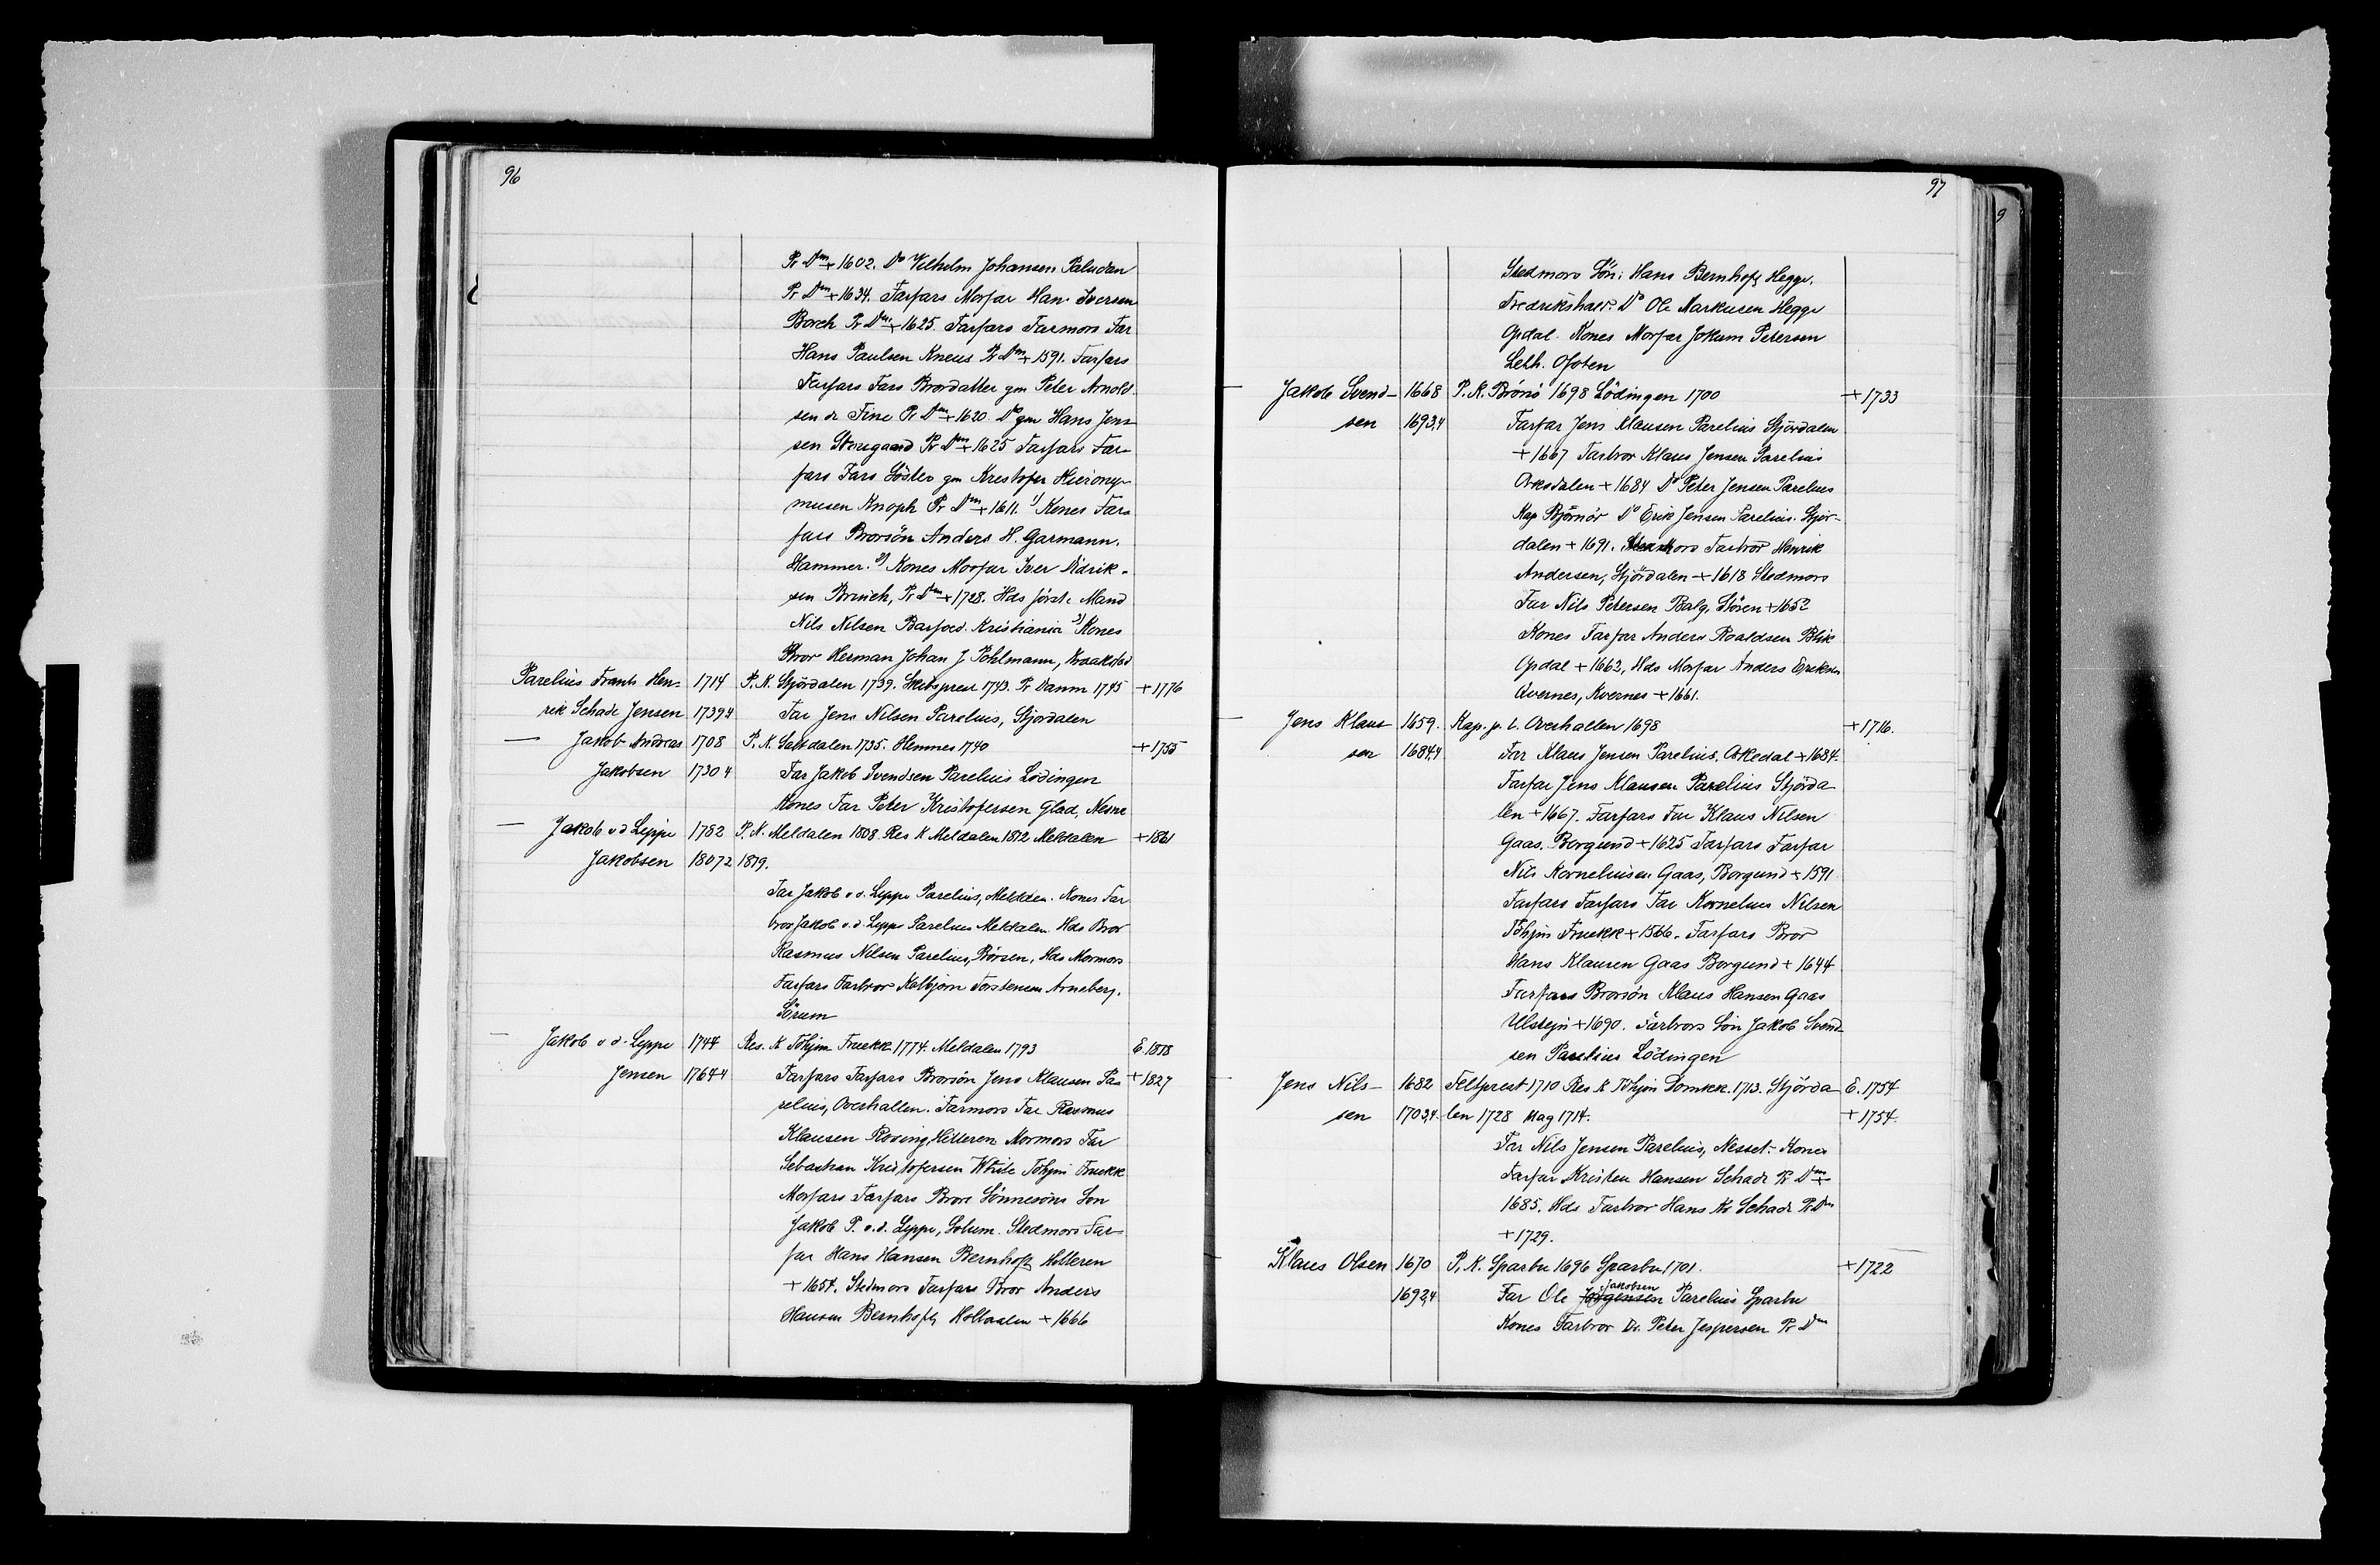 96
Pr Dm + 1602. Do Vilhelm Johansen Paludan
Pr Dm + 1634. Farfars Morfar Hans Iversen
Borch Pr Dm + 1625. Farfars Farmors Far
Hans Paulsen Kneus Pr Dm + 1591. Farfars
Farfars Fars Brordatter gm Peter Arnold-
sen de Fine Pr Dm + 1620. Do gm Hans Jens-
sen Pr Dm + 1625 Farfars Far-
fars Fars Söster gm Kristofer Hierony-
musen Knoph Pr Dm + 1611. 1) Kones Far-
fars Brorsön Anders H. Garmann.
Hammer. 2) Kones Morfar Iver Didrik-
sen Brinch, Pr Dm + 1728. Hds förste Mand
Nils Nilsen Barfoed. Kristiania 3) Kones
Bror Herman Johan J. Pohlmann, Kraakstad
Parelius Frants Hen- 1714 P. K. Stjördalen 1739. Skibsprest 1743. Pr Danm 1745 + 1776
rik Schade Jensen 1739 4 Far Jens Nilsen Parelius, Stjordalen
— Jakob Andreas 1708 P. K. Saltdalen 1735. Hemnes 1740 + 1755
Jakobsen 1730 4 Far Jakob Svendsen Parelius Lodingen
Kones Far Peter Kristofersen Glad, Nesne
— Jakob v d Lippe 1782 P. K. Meldalen 1808. Res K Meldalen 1812 Meldalen + 1861
Jakobsen 1807 2 1819.
Far Jakob v. d. Lippe Parelius, Meldalen. Kones Far
bror Jakob v. d. Lippe Parelius Meldalen. Hds Bror
Rasmus Nilsen Parelius, Börsen, Hds Mormors
Farfars Farbror Kolbjørn Torstensen Arneberg.
Sörum
— Jakob v d. Lippe 1744 Res. K Tohjm Fruekk 1774. Meldalen 1793 E. 1818
Jensen 1764 4 Farfars Farfars Brorsön Jens Klausen Pa- + 1827
relius, Overhallen. Farmors Far Rasmus
Klausen Röving, Hitteren Mormors Far
Sebastian Kristofersen White Tohjm Fruekk
Morfars Farfars Brors Sönnesöns Son
Jakob P. v. d. Lippe, Solum. Stedmors Far-
far Hans Hansen Bernhoft Hitteren
+ 1654. Stedmors Farfars Bror Anders
Hansen Bernhoft, Holtaalen + 1666
97
Stedmors Sön: Hans Bernhoft Hegge.
Fredrikshald. Do Ole Markusen Hegge
Opdal. Kones Morfar Jokum Petersen
Leth. Ofoten
— Jakob Svend- 1668 P. K. Brönö 1698 Lödingen 1700 + 1733
sen 1693.4 Farfar Jens Klausen Parelius Stjördalen
+ 1667 Farbror Klaus Jensen Parelius
Orkedalen + 1684 Do Peter Jensen Parelius
Kap Björnör Do Erik Jensen Parelius. Stjör-
dalen + 1691. Farbror Henrik
Andersen, Stjördalen + 1618 Stedmors
Far Nils Petersen Balg, Stören + 1652
Kones Farfar Anders Roaldsen Blik
Opdal + 1662, Hds Morfar Anders Eriksen
Qvernes, Kvernes + 1661.
— Jens Klaus- 1659. Kap. p. l. Overhallen 1698 + 1716.
sen 1684,4 Far Klaus Jensen Parelius. Orkedal + 1684.
Farfar Jens Klausen Parelius Stjörda-
len + 1667. Farfars Far Klaus Nilsen
Gaas, Borgund + 1625 Farfars Farfar
Nils Korneliusen Gaas, Borgund + 1591
Farfars Farfars Far Kornelius Nilsen
Tohjm Fruekk + 1566. Farfars Bror
Hans Klausen Gaas Borgund + 1644
Farfars Brorsön Klaus Hansen Gaas
Ulstejn + 1690. Farbrors Sön Jakob Svend-
sen Parelius Lödingen
— Jens Nils- 1682 Feltprest 1710 Res K Tohjm Domkk. 1713. Stjörda- E. 1754
sen 1703,4. len 1728 Mag 1714. + 1754.
Far Nils Jensen Parelius, Nesset. Kones
Farfar Kristen Hansen Schade Pr Dm +
1685. Hds Farbror Hans Kr Schade Pr Dm
+ 1729.
— Klaus Olsen 1670 P. K. Sparbu 1696 Sparbu 1701. + 1722
1692,4 Far Ole Jörgensen Jakobsen Parelius Sparbu
Kones Farbror Dr. Peter Jespersen Pr Dm